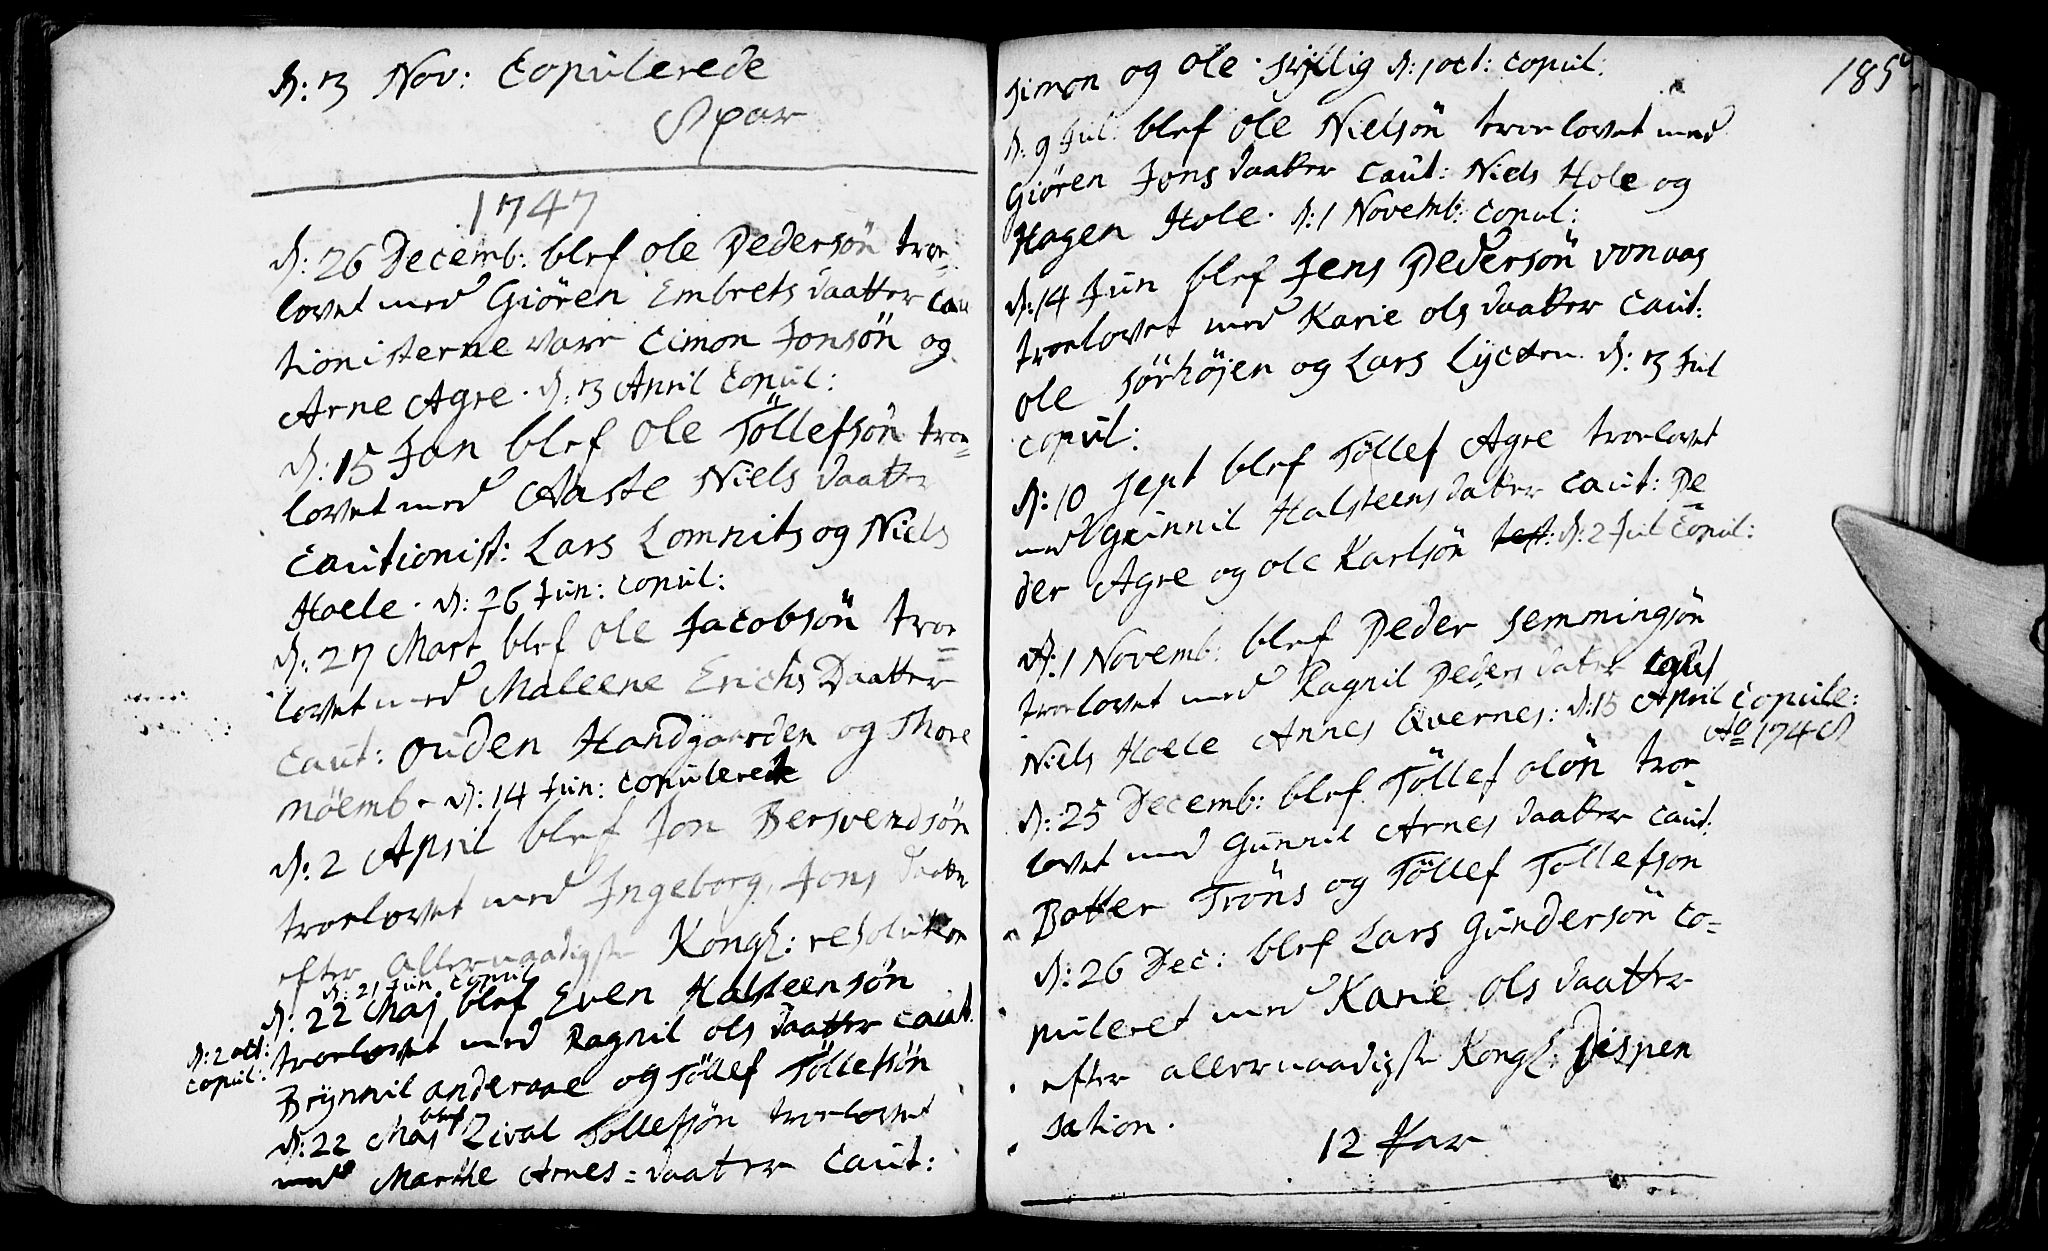 d: 13 Nov: Copulerede
8 par
1747
d: 26 Decemb: blef Ole Pedersön troe-
lovet med Giören Embrets daatter Cau
tionisterne vare Cimon Jonsön og
Arne Agre. d: 13 April Copul:
d: 15 Jan blef Ole Töllefsön troe=
lovet med Aaste Niels daatter
Cautionist: Lars Lomnits og Niels
Hoele. d: 26 Jun: Copul:
d: 27 Mart blef Ole Jacobsön troe=
lovet med Maleene Erichs Daatter
Caut: Ouden Handgaarden og Thore
Möemb. d: 14 Jun: Copulerede
d: 2 April blef Jon Bersvendsön
troelovet med Ingeborg Jons daatter
efter allernaadigste Kongl: resolution
d: 21 Jun Copul
d: 22 Maj blef Even Halsteensön
troelovet med Ragnil Ols daatter Caut.
d: 2 oct:
Copul:
Brynnil anderaae og Töllef Töllefsön
d: 22 Maj blef Zival Tollefsön troelovet
med Marthe Arnes=daatter Caut:
185
Simon og Ole Syllig d: 1 oct: Copul:
d: 9 Jul: blef Ole Nielsön troelovet med
Giören Jons daatter Caut: Niels Hole og
Hagen Hole. d: 1 Novemb: Copul:
d: 14 Jun blef Jens Pedersön Vonaas
troelovet med Karie Ols daatter Caut:
Ole Sörhöjen og Lars Lycten. d: 13 Jul
Copul:
d: 10 Sept blef Töllef Agre troelovet
med Gunnil Halsteens datter Caut: Pe
der Agre og Ole Karlsön test: d: 2 Jul Copul:
d: 1 Novemb: blef Peder Semmingsön
troelovet med Ragnil Peders datter Caut
Niels Hoele Annes Qvernes: d: 15 April Copule:
Ao 1748
d: 25 Decemb: blef Töllef Olön troe-
lovet med Gunnil Arnes daatter Caut:
Botter Tröns og Töllef Tollefson
d: 26 Dec: blef Lars Gundersön Co=
puleret med Karie Ols daatter
efter allernaadigste Kongl: Dispen
sation.
12 Par